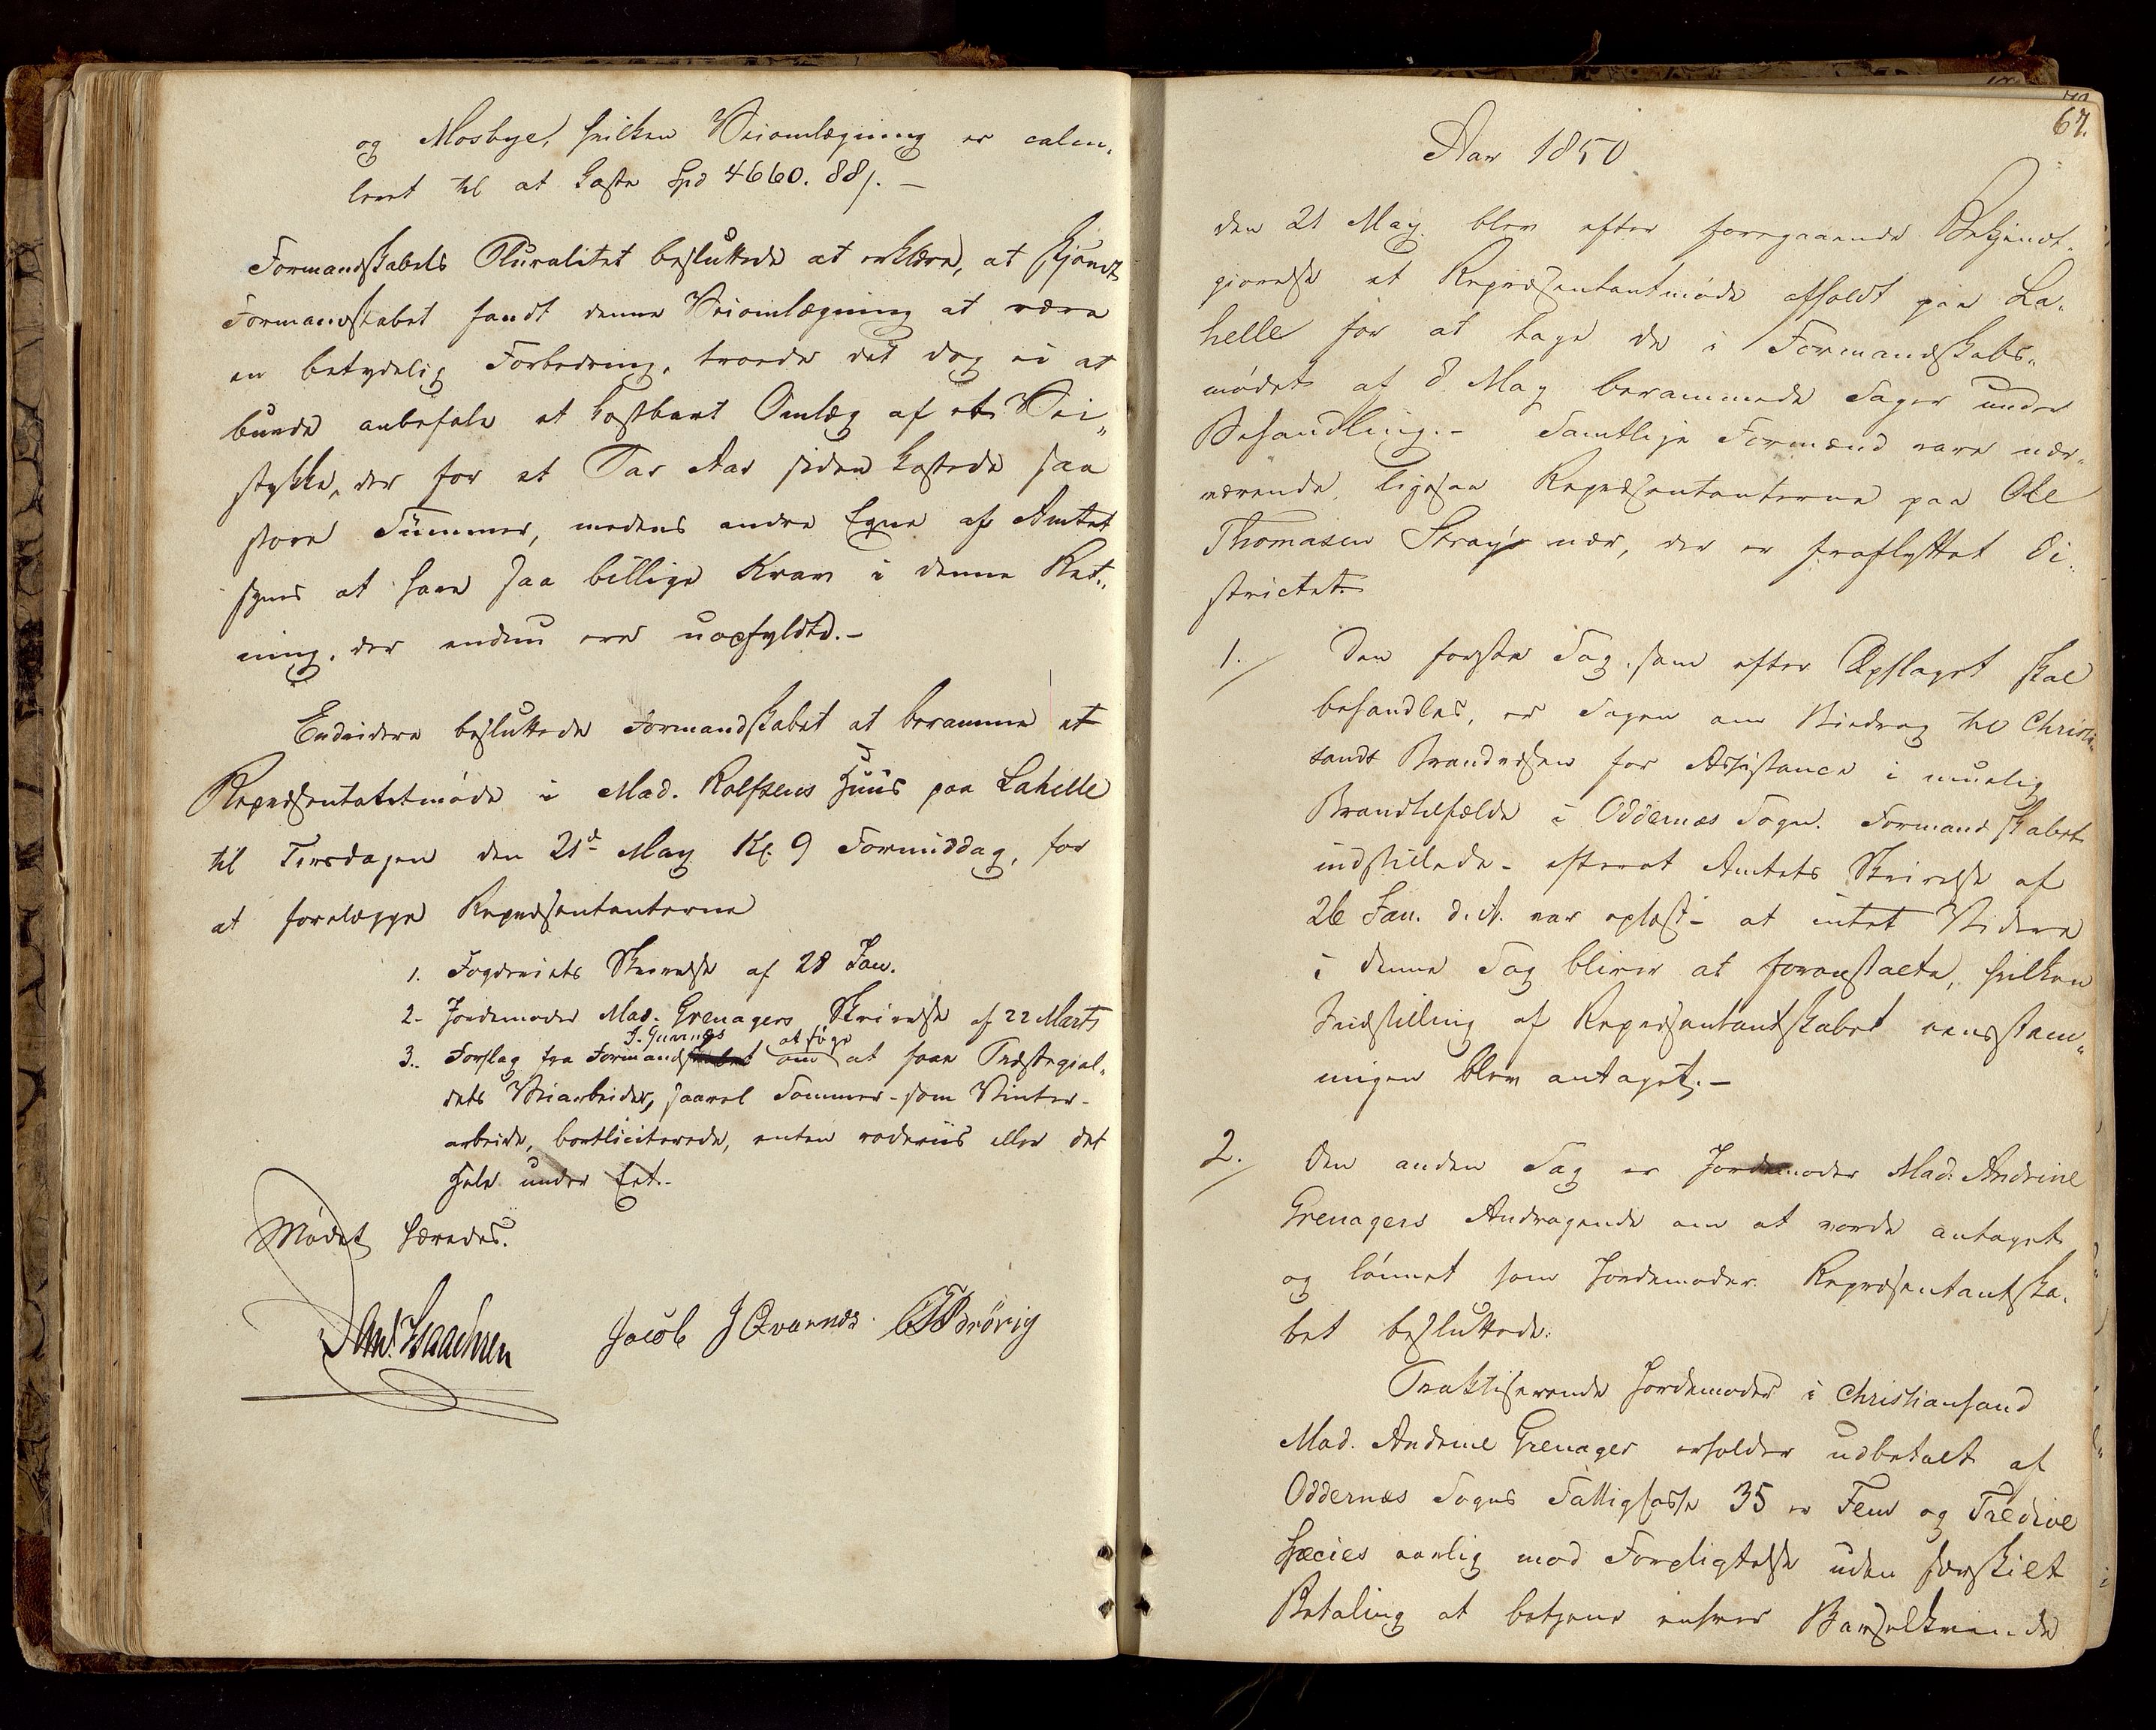 og Mosbye, hvilken Veiomlægning er calcu¬
leret til at koste Spd 4660. 88/. —
Formandskabets Pluralitet besluttede at erklære, at skjøndt
Formandskabet fandt denne Veiomlægning at være
en betydelig Forbedring, troede det dog ei at
burde anbefale et kostbart Omlæg af et Vei„
stykke, der for et Par Aar siden kostede saa
store Summer, medens andre Egne af Amtet
synes at have saa billige Krav i denne Ret„
ning, der endnu ere uopfyldte.—
Endvidere besluttede Formandskabet at beramme et
Repræsentantmøde i Mad. Rolfsens Huus paa Lahelle
til Tirsdagen den 21de May Kl. 9 Formiddag, for
at forelægge Repræsentanterne
1. Fogderiets Skrivelse af 28 Jan.
2. Jordemoder Mad. Grenagers Skrivelse af 22 Marts
3. Forslag fra Formand J. Qvarnes om at søge at faae Præstegjel„
dets Veiarbeider, saavel Sommer- som Vinter-
arbeide, bortliciterede, enten rodeviis eller det
Hele under Eet.-
Mødet hævedes.
Dan. Isaachsen Jacob J Qvarnes Brørig
67.
Aar 1850
den 21 May blev efter foregaaende Bekjendt„
gjørelse et Repræsentantmøde afholdt paa La„
helle for at tage de i Formandskabs„
mødet af 8 May berammede Sager under
Behandling.- Samtlige Formænd vare nær„
værende, ligesaa Repræsentanterne paa Ole
Thomasen Strøy nær, der er fraflyttet Di„
strictet.
1. Den første Sag, som efter Opslaget skal
behandles, er Sagen om Bidrag til Christi„
sands Brandvæsen for Assistance i muelig
Brandtilfælde i Oddernæs Sogn. Formandskabet
indstillede - efterat Amtets Skrivelse af
26 Jan. d. A. var oplæst - at intet Videre
i denne Sag bliver at foranstalte, hvilken
Indstilling af Repræsentantskabet eensstem„
migen blev antaget.—
2. Den anden Sag er Jordemoder Mad: Andrine
Grenagers Andragende om at vorde antaget
og lønnet som Jordemoder. Repræsentantska„
bet besluttede:
Praktiserende Jordemoder i Christiansand
Mad. Andrine Grenager erholder udbetalt af
Oddernæs Sogns Fattigkasse 35 er Fem og Tredive
Species aarlig mod Forpligtelse uden særskilt
Betaling at betjene enhver Barselkvinde